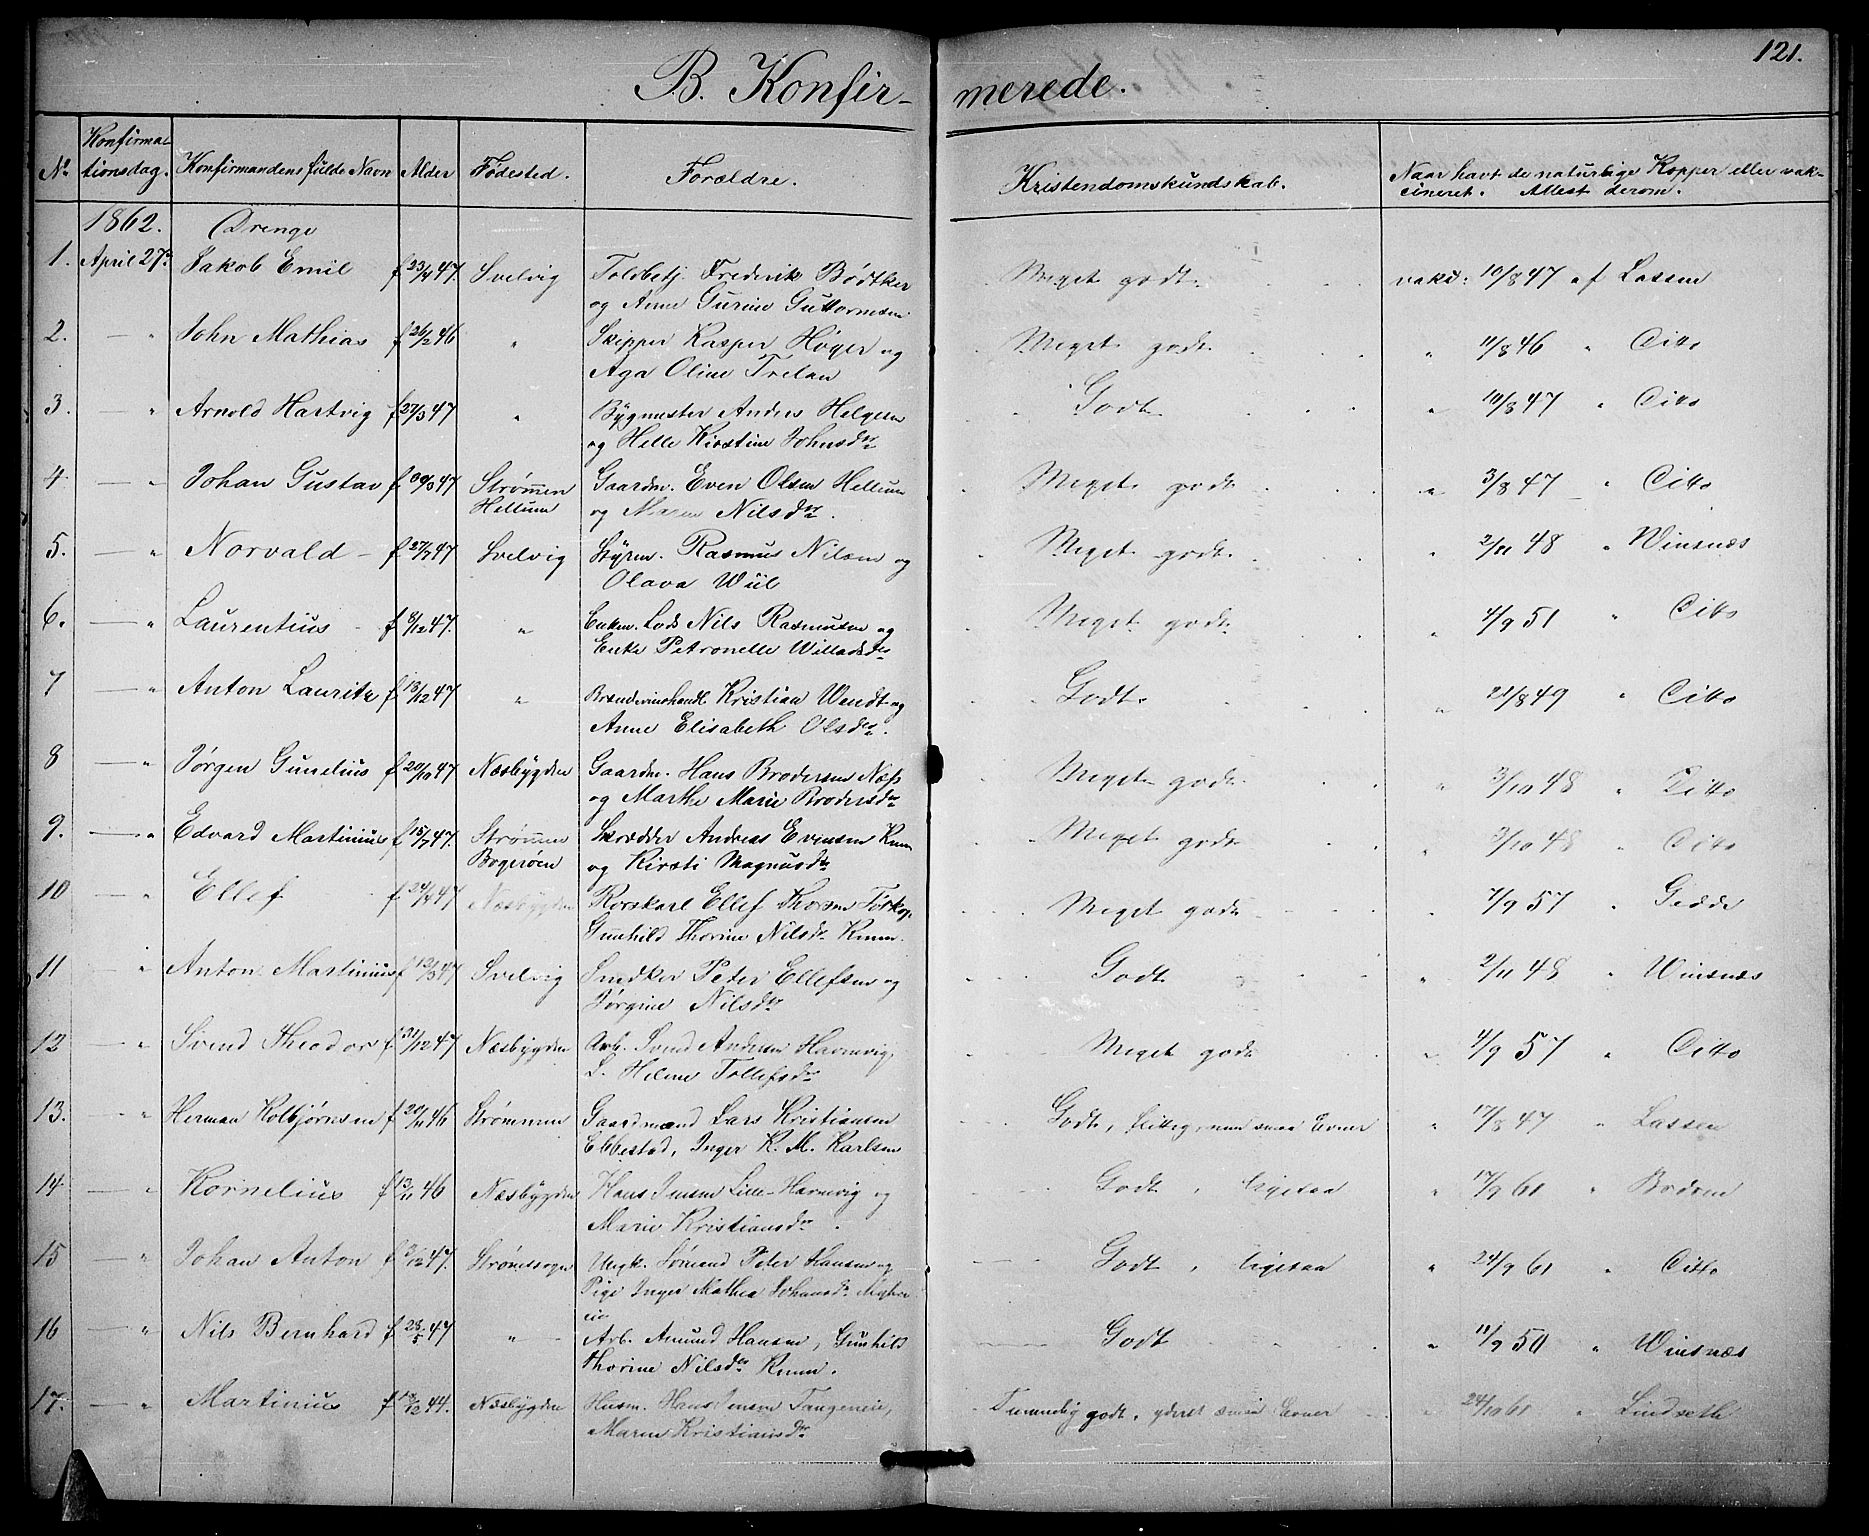 121.
B. Konfir- merede.
No Konfirma- tionsdag. Konfirmandens fulde Navn Alder Fødested. Forældre. Kristendomskundskab. Naar havt de naturlige Kopper eller vak-
cineret. Attest derom.
1862. Drenge
1. April 27de Jakob Emil f 23/4 47. Svelvig Toldbetj. Frederik Bødtker Meget godt vakc: 10/8 47 af Lassen
og Anne Gurine Guttormsen.
2. — " John Mathias f 26/2 46 " Skipper Kasper Høyer og Meget godt " 11/8 46 " Ditto
Aga Oline Trelan
3. — " Arnold Hartvig f 27/3 47 " Bygmester Andres Helgesen Godt " 10/8 47 " Ditto
og Helle Kirstine Johnsdr
4. — " Johan Gustav f 47 Strømmen Gaardm. Even Olsen Hellum Meget godt " 3/8 47 " Ditto
Hellum og Maren Nilsdr.
5. — " Norvald — f 27/7 47 Svelvig Styrm. Rasmus Nilsen og Meget godt " 2/11 48 " Winsnæs
Olava Wiil
6. — " Laurentius f 8/12 47. " Enkem. Lods Nils Rasmusen og Meget godt " 4/9 51 " Ditto
Enke Petronelle Willadsdr
7 — " Anton Lauritz f 13/12 47 " Brændevinshandl Kristian Wendt og Godt " 21/8 49 " Ditto
Anne Elisabeth Olsdr.
8 — " Jørgen Gunelius f 20/10 47 Næsbygden Gaardm. Hans Brodersen Næss Meget godt " 3/10 48 " Ditto
og Marthe Marie Brodersdr
9. — " Edvard Martinius f 15/7 47. Strømmen Skrædder Andreas Evensen Knem Meget godt " 3/10 48 " Ditto
Bogerøen og Kirsti Magnusdr
10 — " Ellef f 24/4 47 Næsbygden Rorskarl Ellef Thorsen Tørkop Meget godt " 7/9 57 " Gedde
Gunhild Thorine Nilsdr Knem.
11 " Anton Martinius f 12/3 47 Svelvig Snedker Peter Ellefsen og Godt " 2/11 48 " Winsnæs
Jørgine Nilsdr
12 — " Svend Theodor f 31/12 47 Næsbygden Arb. Svend Andersen Havnvig, Meget godt " 4/9 57 " Ditto
L. Helene Tollefsdr
13. — " Herman Kolbjørnsen f 20/11 46 Strømmen Gaardmand Lars Kristiansen Godt, flittig, men smaa Evner " 17/8 47 " Lassen
Ebbestad, Inger K. M. Karlsen
14 — " Kornelius f 13/11 46 Næsbygden Hans Jensen Lille-Havnvig og Godt, ligesaa " 17/9 61 " Bodom
Marie Kristiansdr.
15 — " Johan Anton f 3/12 47. Strømssogn Ungk. Sømand Peter Hansen og Godt, ligesaa " 24/9 61 " Ditto
Pige Inger Mathea Johansdr
16 — " Nils Bernhard f 28/5 47 " Arb. Amund Hansen, Gunhild Godt " 11/9 50 " Winsnæs
Thorine Nilsdr Knem.
17. — " Martinius f 18/12 44. Næsbygden Husm. Hans Jensen Tangeneie, Temmelig godt, yderst smaa Evner " 24/10 61 " Lindseth
Maren Kristiansdr